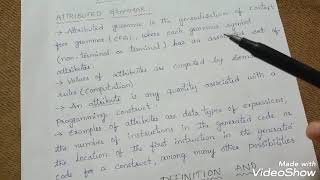 ATTRIBUTED GRAMMAR
→ Attributed grammar is the generalization of context
free grammar (CFG), where each grammar symbol
(non-terminal or terminal) has an associated set of
attributes.
→ Values of attributes are computed by semantic
rules (computation)
→ An attribute is any quantity associated with a
Programming construct.
→ Examples of attributes are data types of expressions,
the number of instructions in the generated code or
the location of the first instruction in the generated
code for a construct, among many other possibilities
DEFINITION AND
Made with
VideoShow